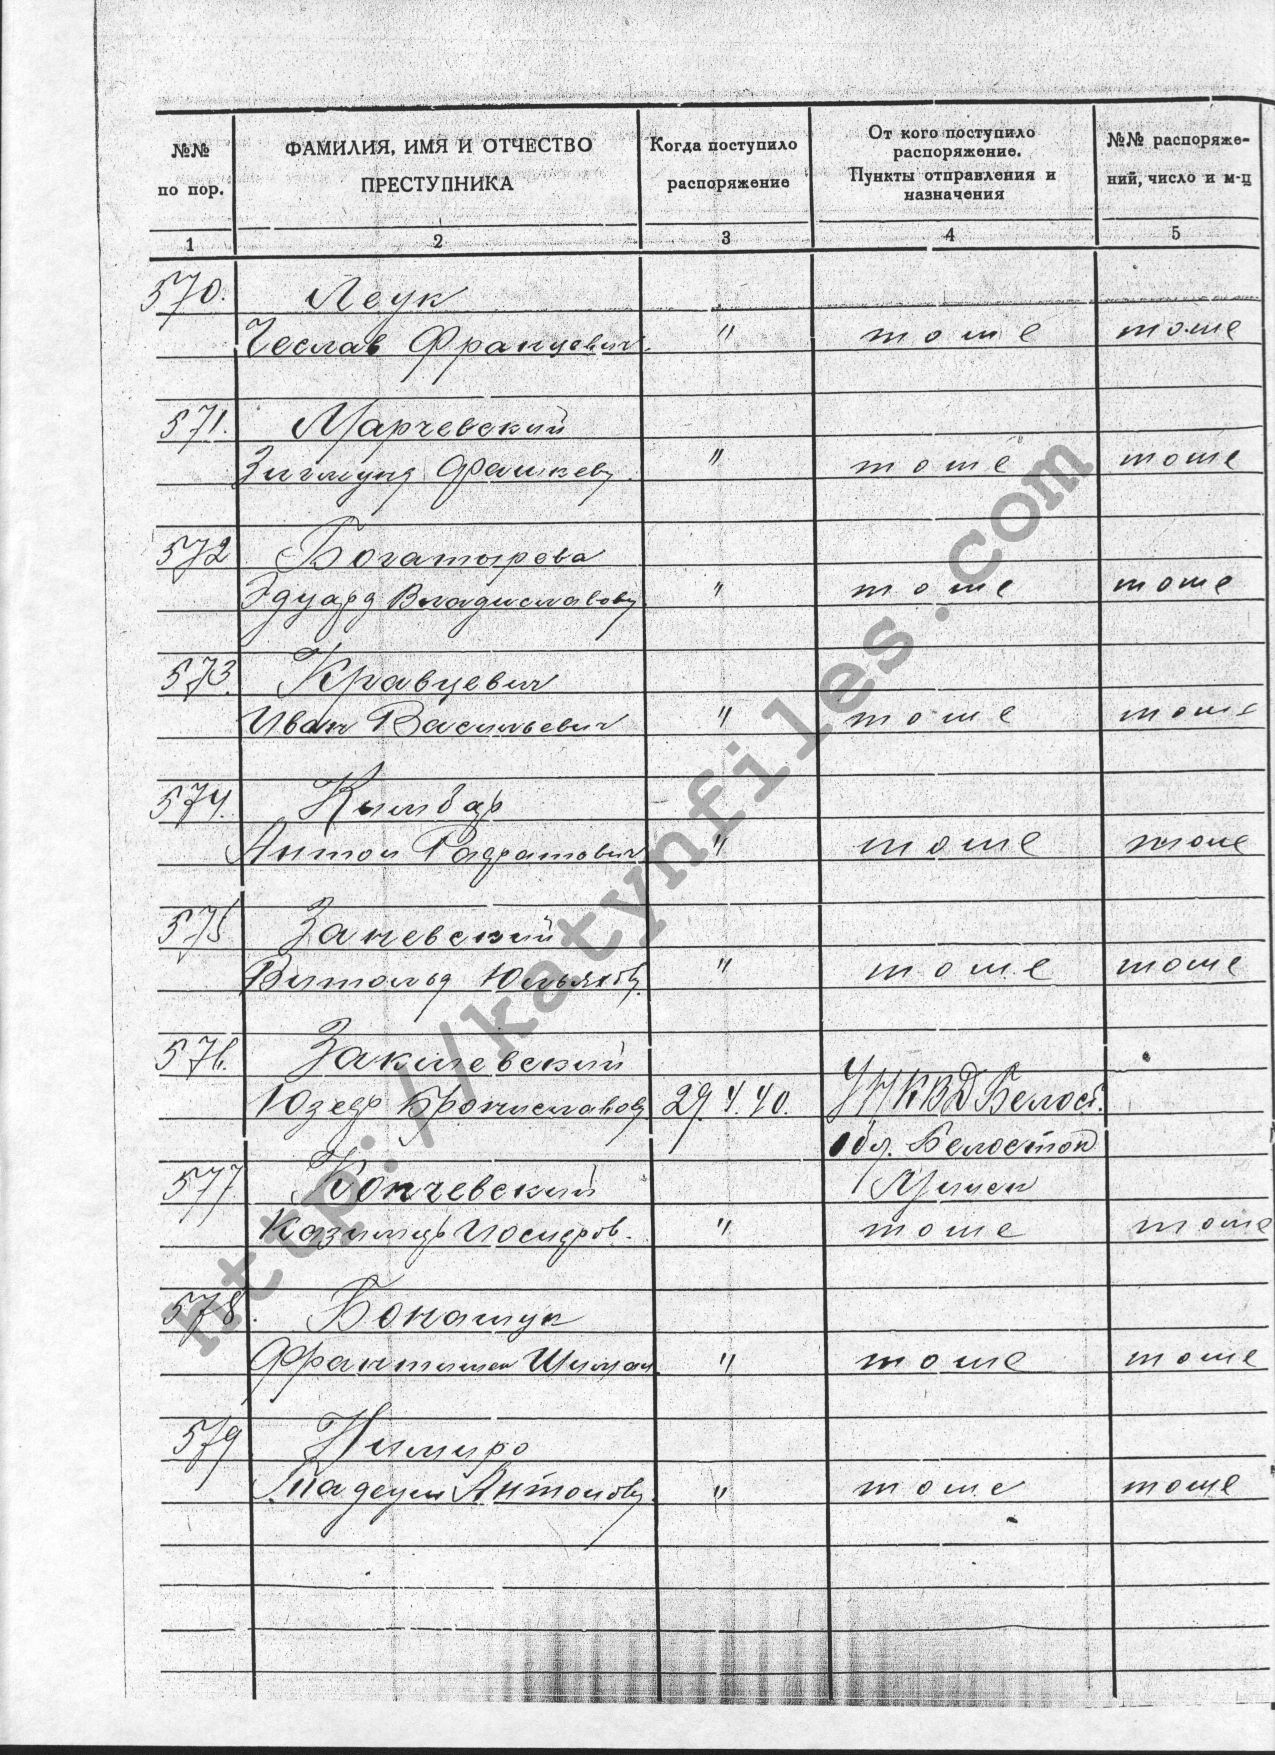 №№ по пор.
ФАМИЛИЯ, ИМЯ И ОТЧЕСТВО ПРЕСТУПНИКА
Когда поступило распоряжение
От кого поступило распоряжение. Пункты отправления и назначения
№№ распоряже-
ний, число и м-ц
1 2 3 4 5
570. Леук
Чеслав Францевич " тоже тоже
571. Марчевский
Зигмунд " тоже тоже
572 Богатырева
Эдуард Владиславович " тоже тоже
573. Кравцевич
Иван Васильевич " тоже тоже
574. Кымбар
Антон " тоже тоже
575 Заневский
Витольд " тоже тоже
576. Закшевский
Юзеф Брониславов 29.4.40. УНКВД Белост.
обл. Белосток
577 Кончевский Минск
Казимир Иосифов. " тоже тоже
578. Бонашук
Францишек Шиман " тоже тоже
579 Нимиро
Тадеуш Антонов " тоже тоже
http://katynfiles.com